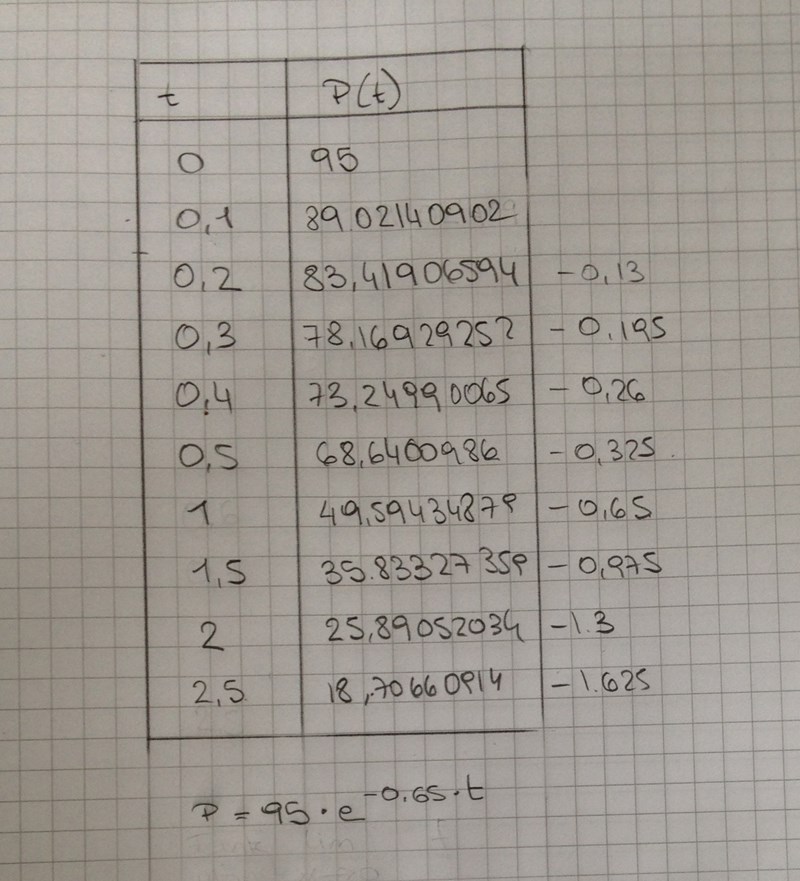 t P(t)
0 95
0,1 89.02140902
0,2 83,41906594 -0,13
0,3 78,16929252 -0,195
0,4 73,24990065 -0,26
0,5 68,6400986 -0,325
1 49,59434879 -0,65
1,5 35.83327359 -0,975
2 25,89052034 -1.3
2,5 18,70660914 -1.625
P = 95 · e^-0.65·t